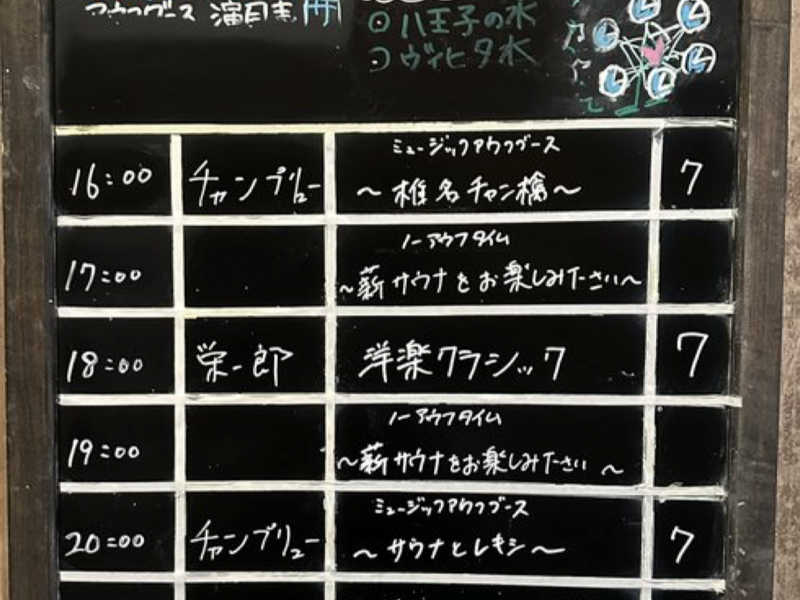 アウフグース 演目表
八王子の水
ヴィヒタ水
16:00 チャンプリュー ミュージックアウフグース 7
～椎名チャン檎～
17:00 ノーアウフタイム
～薪サウナをお楽しみ下さい～
18:00 栄一郎 洋楽クラシック 7
19:00 ノーアウフタイム
～薪サウナをお楽しみ下さい～
20:00 チャンプリュー ミュージックアウフグース 7
～サウナとレキシ～